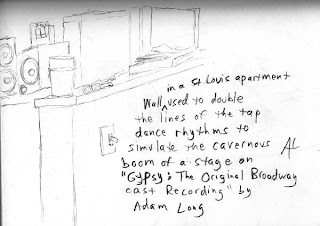 in a St Louis apartment
Wall ^ used to double
the lines of the tap
dance rhythms to
simulate the cavernous
boom of a stage on
"Gypsy: The Original Broadway
cast Recording" by
Adam Long